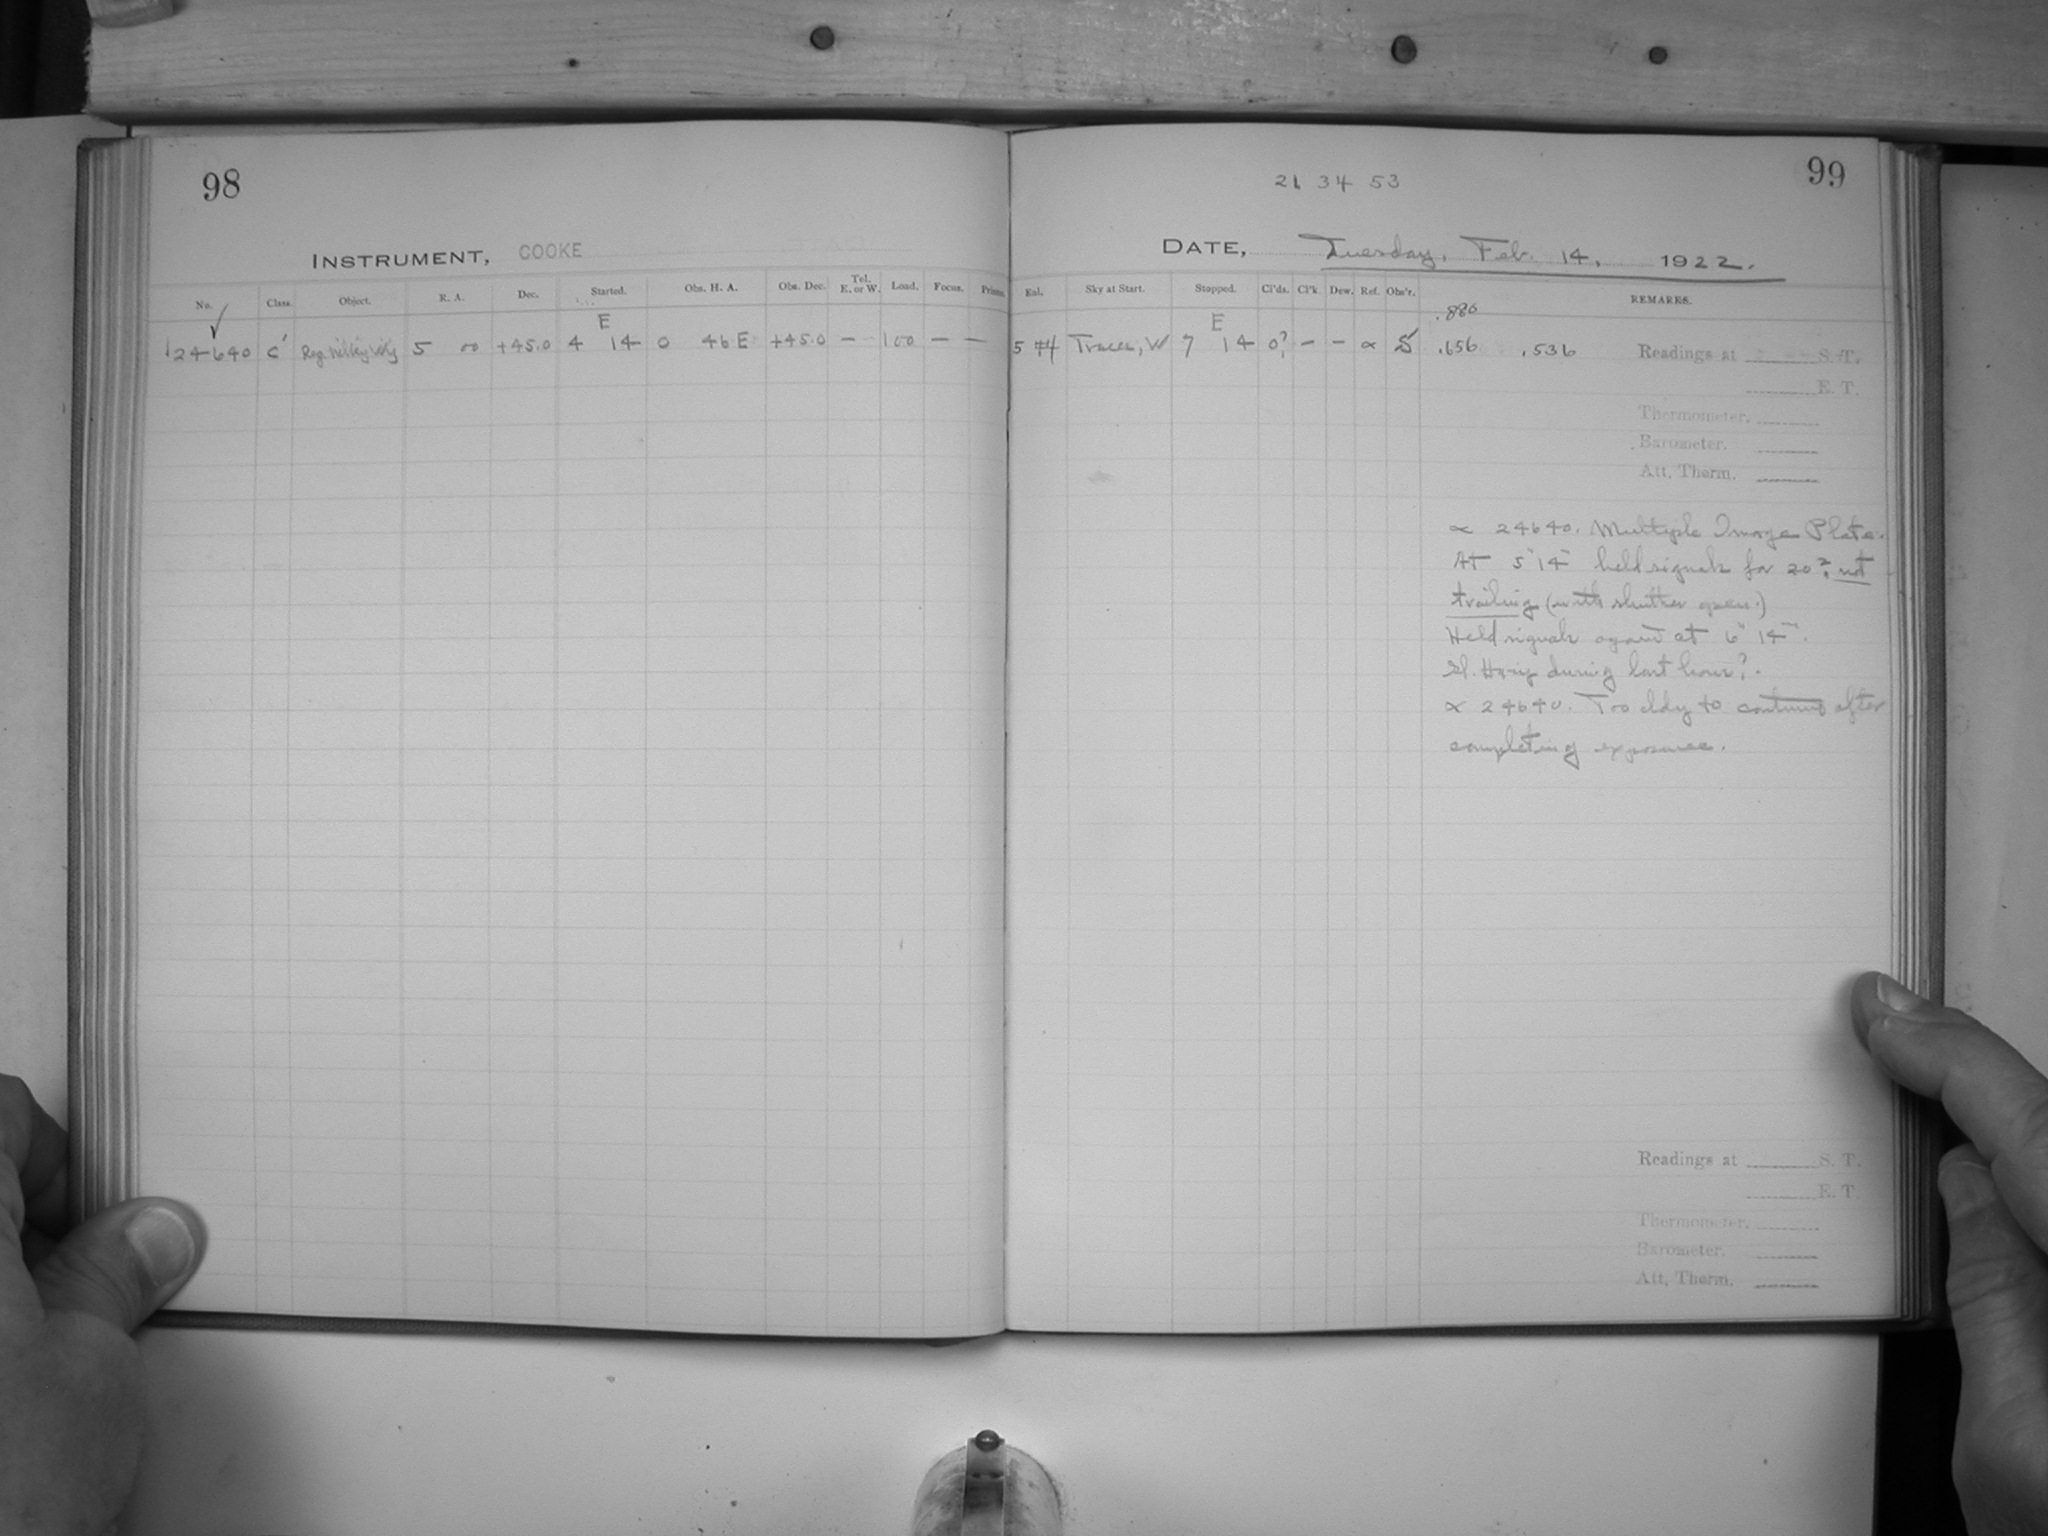 98
INSTRUMENT, COOKE
No. Class. Object. R. A. Dec. Started. Obs. H. A. Obs. Dec. Tel. E. or W. Load. Focus. Prisms.
E
24640 C' 5 00 +45.0 4 14 0 46 E +45.0 — 100 — —
99
21 34 53
DATE, Tuesday, Feb. 14, 1922.
Sky at Start. Stopped. Cl'ds. Cl'k. Dew. Ref. Obs'r. REMARKS.
.886
E
5 44 Traces, W 7 14 0? — — ∝ .656 .536 Readings at S. T.
E. T.
Thermometer.
Barometer.
Att. Therm.
∝ 24640. Multiple Image Plate.
At 5h 14m held signals for 20s, not
trailing (with shutter open.)
Held signals again at 6h 14m.
Sl. Hazy during last hour?.
∝ 24640. Too cldy to continue after
completing exposure.
Readings at S. T.
E. T.
Thermometer.
Barometer.
Att. Therm.